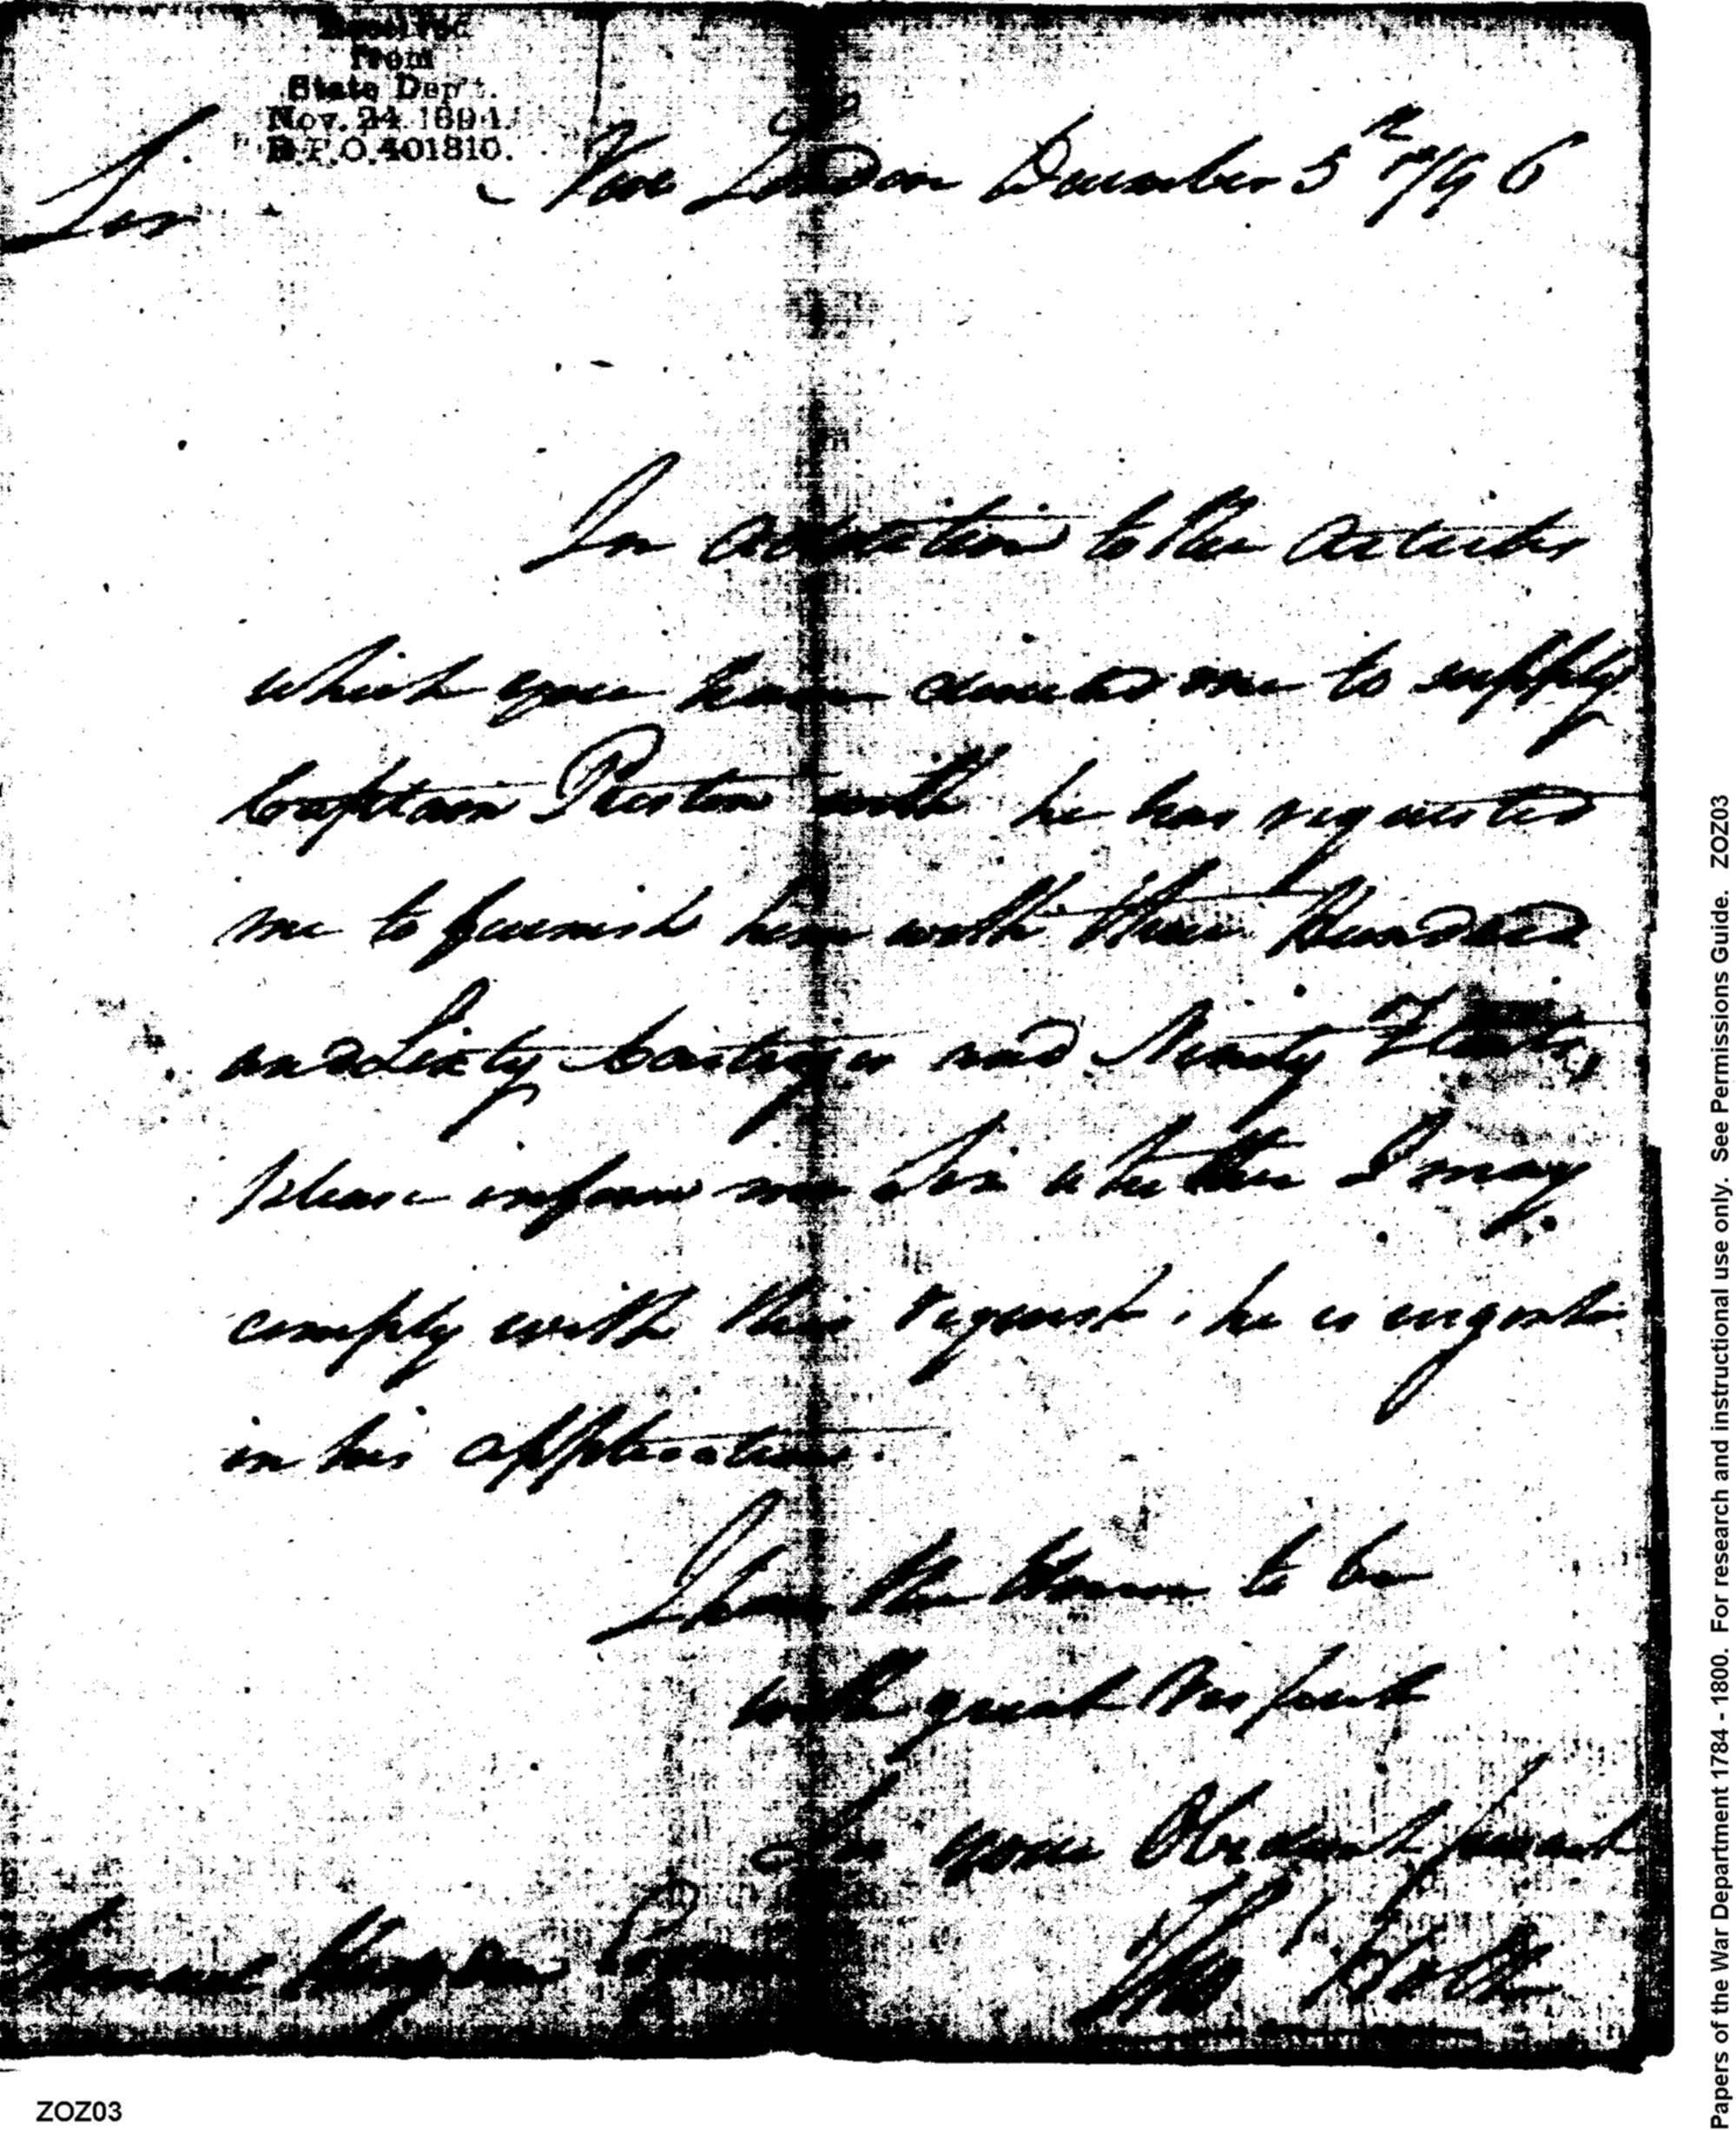 Received
from
State Dep't.
Nov. 24 1894.
B.P.O. 401810.
Sir
New London December 5th 1796
In addition to the articles
which you have directed me to supply
Captain Preston with he has requested
me to furnish him with three Hundred
and Sixty Cartriges and Ninety Flints,
please inform me Sir whether I may
comply with this request, he is urgent
in his application.
I have the Honor to be
with great Respect
Sir your Obedient servant
Samuel Hodgdon Esquire
ZOZ03
Papers of the War Department 1784 - 1800. For research and instructional use only. See Permissions Guide. ZOZ03